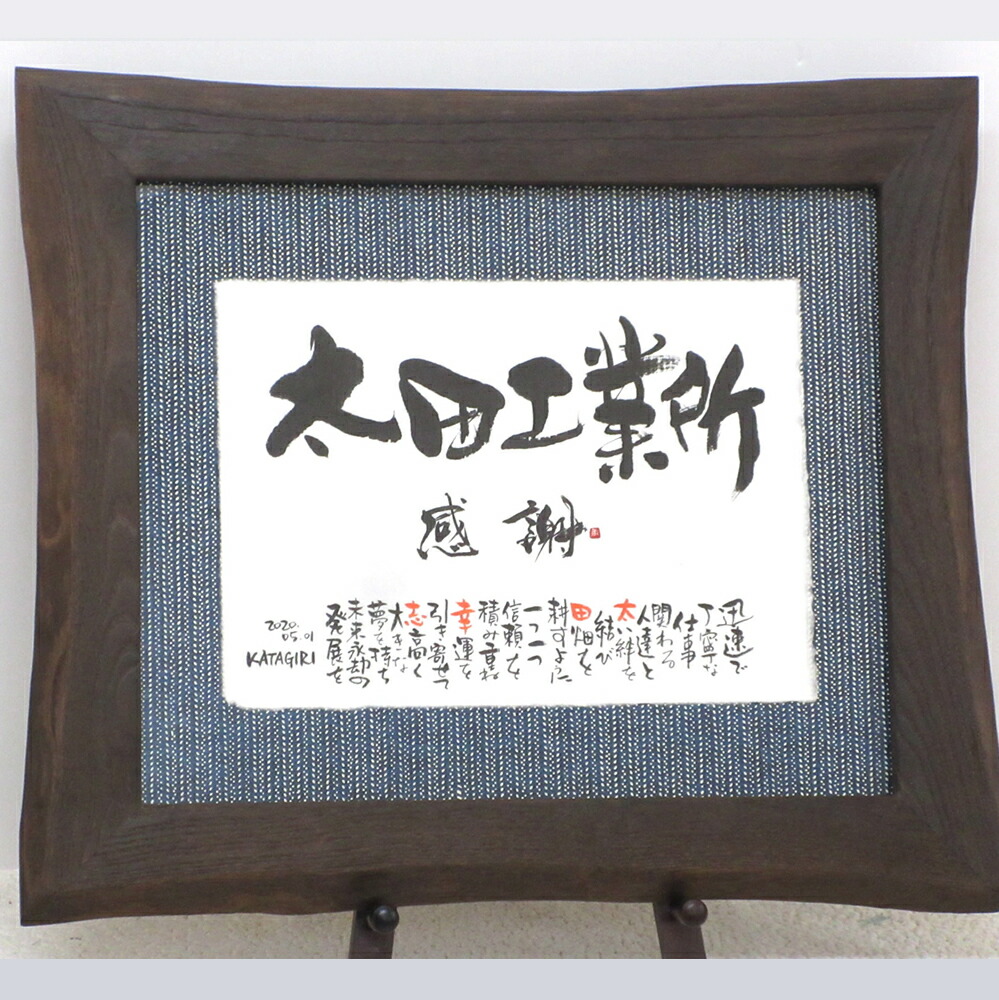 太田工業所
感謝
迅速で
丁寧な
仕事
関わる
人達と
太い絆を
結び
田畑を
耕すように
一つ一つ
信頼を
積み重ね
幸運を
引き寄せて
志高く
大きな
夢を持ち
未来永劫の
発展を
2020.
05.01
KATAGIRI